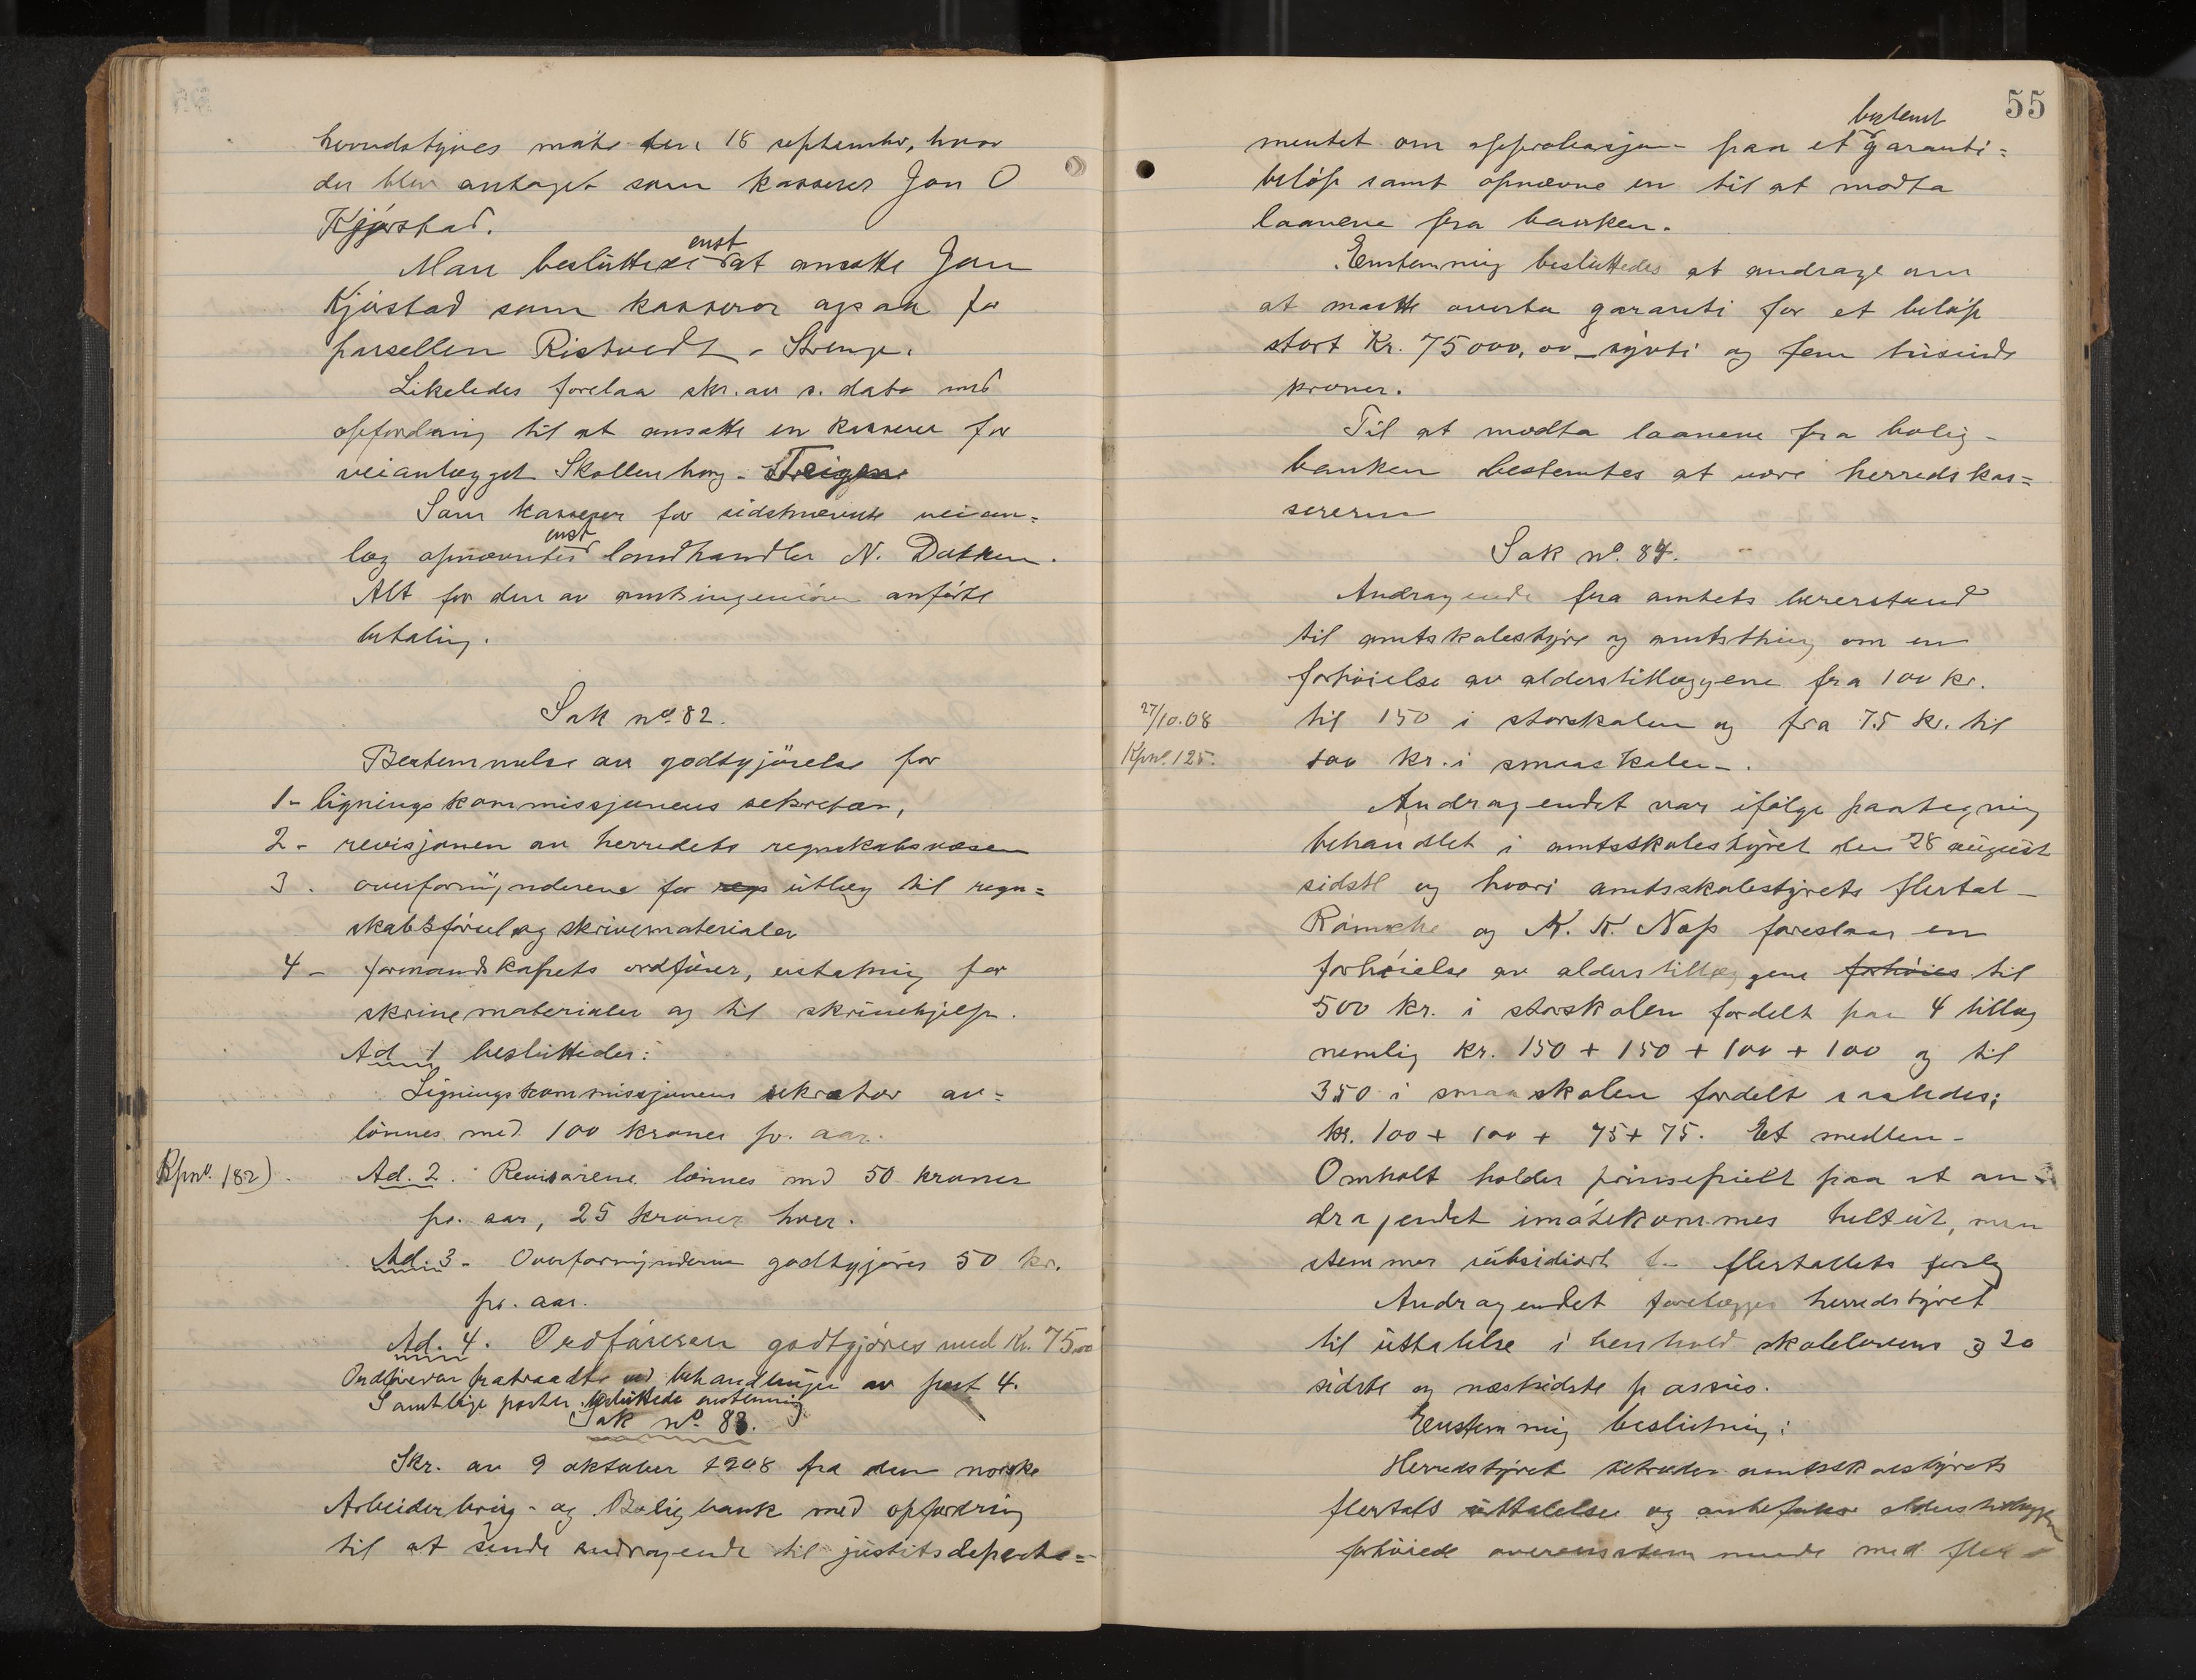 herredstyres møte den 18 september, hvor
der blev antaget som kasserer Jon O
Kjørstad.
enst
Man besluttede at ansætte Jon
Kjørstad som kasserer ogsaa for
parsellen Ristvedt - Strenge.
Likeledes forelaa skr. av s. dato med
opfordring til at ansætte en kasserer for
veianlægget Skollenborg - Teigen
Som kasserer for sidstnævnte veian=
enst
læg opnævntes landhandler N. Dokken.
Alt for den av amtsingeniøren anførte
betaling.
Sak no. 82.
Bestemmelse av godtgjørelse for
1- ligningskommissjonens sekretær,
2- revisjonen av herredets regnskabsvæsen
3. overformynderene for utlæg til regn=
skabsførsel og skrivematerialer
4- formandskapets ordfører, erstatning for
skrivematerialer og til skrivehjelp.
Ad 1 besluttedes:
Ligningskommissjonens sekretær av=
lønnes med 100 kroner pr. aar.
Kpnr. 182).
Ad. 2. Revisorene lønnes med 50 kroner
pr. aar, 25 kroner hver.
Ad. 3- Overformynderne godtgjøres 50 kr.
pr. aar.
Ad. 4. Ordføreren godtgjøres med Kr. 75.00
Ordføreren fratraadte ved behandlingen av post 4.
Samtlige poster besluttede enstemmig.
Sak no. 83.
Skr. av 9 oktober 1908 fra den norske
Arbeiderbruk- og Boligbank med opfordring
til at sende andragende til justitsdeparte=
55
bestemt
mentet om approbasjon paa et garanti=
beløp samt opnævne en til at modta
laanene fra banken.
Enstemmig besluttedes at andrage om
at maatte overta garanti for et beløp
stort Kr. 75000,00 - sytti og fem tusinde
kroner.
Til at modta laanene fra bolig-
banken bestemtes at være herredskas=
sereren
Sak no. 84.
Andragende fra amtets lærerstand
til amtskolestyre og amtsthing om en
forhøielse av alderstillæggene fra 100 kr.
27/10.08
til 150 i storskolen og fra 75 kr. til
Kpnr. 125.
100 kr. i smaaskolen-.
Andragendet var ifølge paategning
behandlet i amtsskolestyret den 28 august
sidstl og hvori amtsskolestyrets flertal-
og K. K. Nap foreslaar en
forhøielse av alderstillæggene forhøies til
500 kr. i storskolen fordelt paa 4 tillæg
nemlig kr. 150 + 150 + 100 + 100 og til
350 i smaaskolen fordelt saaledes;
kr. 100 + 100 + 75 + 75. Et medlem-
Omholt holder prinsipielt paa at an=
dragendet imøtekommes heltut, men
stemmer subsidiært f- flertallets forslag
Andragendet forelægges herredstyret
til uttalelse i henhold skolelovens § 20
sidste og næstsidste passus.
Enstemmig beslutning:
Herredstyret tiltræder amtsskolestyrets
flertals uttalelse og anbefaler alderstillæggene
forhøiede overensstemmende med